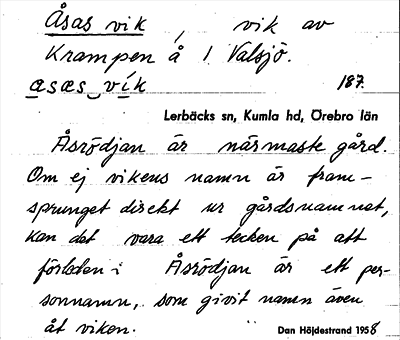 Åsas vik, vik av
Krampen å l Valsjö.
asas vík 187.
Lerbäcks sn, Kumla hd, Örebro län
Åsrödjan är närmaste gård.
Om ej vikens namn är fram-
sprunget direkt ur gårdsnamnet,
kan det vara ett tecken på att
förleden i Åsrödjan är ett per-
sonnamn, som givit namn även
åt viken.
Dan Höjdestrand 1958